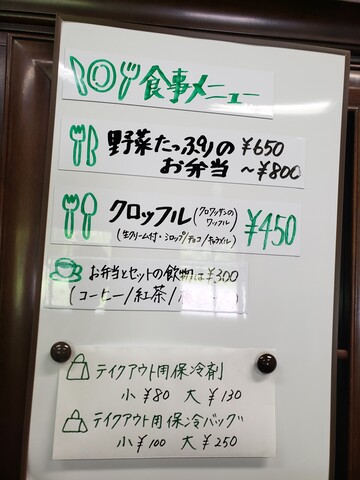 食事メニュー
野菜たっぷりの ¥650
お弁当 ~¥800
クロッフル (クロワッサンのワッフル) ¥450
(生クリーム付・シロップ/チョコ/キャラメル)
お弁当とセットの飲物は¥300
(コーヒー/紅茶/
テイクアウト用保冷剤
小 ¥80 大 ¥130
テイクアウト用保冷バッグ
小 ¥100 大 ¥250